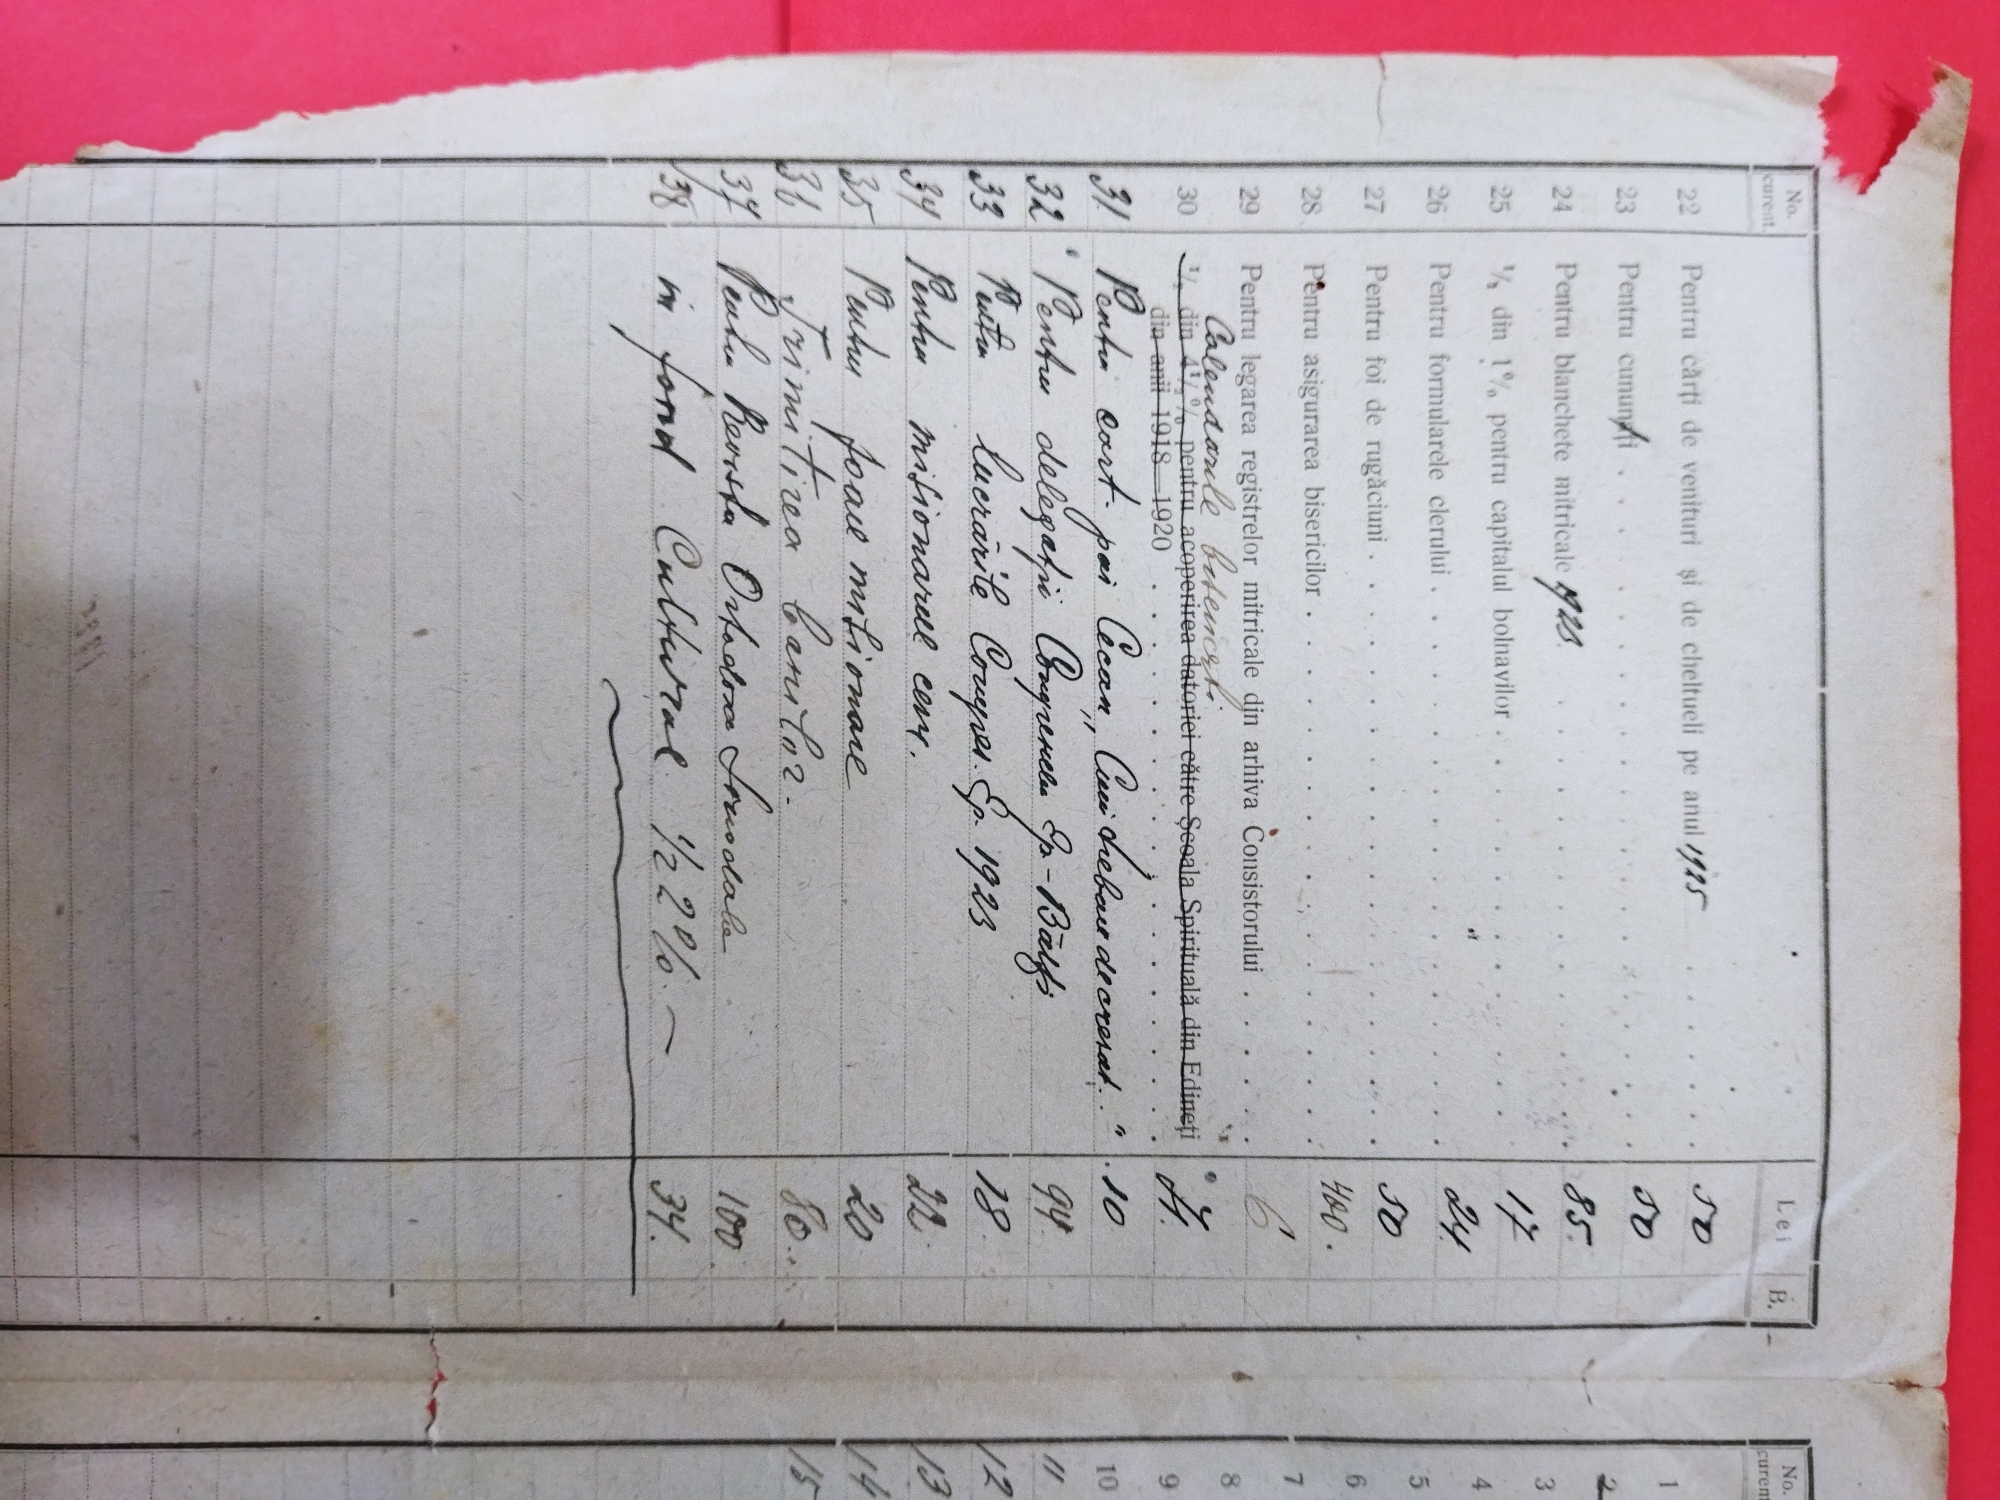 No. curent. Lei B.
22 Pentru cărți de venituri și de cheltueli pe anul 1925 . . . . 50
23 Pentru cununii . . . . 50
24 Pentru blanchete mitricale 1925. . . . . 85.
25 ½ din 1% pentru capitalul bolnavilor . . . . 17
26 Pentru formularele clerului . . . . 24
27 Pentru foi de rugăciuni . . . . 50
28 Pentru asigurarea bisericilor . . . . 400.
29 Pentru legarea registrelor mitricale din arhiva Consistorului . . . . 6
Calendarile bisericești
30 ½ din 4½% pentru acoperirea datoriei către Școala Spirituală din Edineți
din anii 1918—1920 . . . .
31 Pentru cart. 10
32 Pentru delegații Congresului Ep-Bălți 94.
33 Pentru lucrările Congres. Ep. 1923 18.
34 Pentru misionarul cerc. 22.
35 Pentru foaie misionare 20
36 Trimitirea banilor. 80..
37 Pentru Revista Ortodoxa Sinodale 100.
38 in fond Cultural ½ 2%. — 34.
No. curent
1
2
3
4
5
6
7
8
9
10
11
12
13
14
15